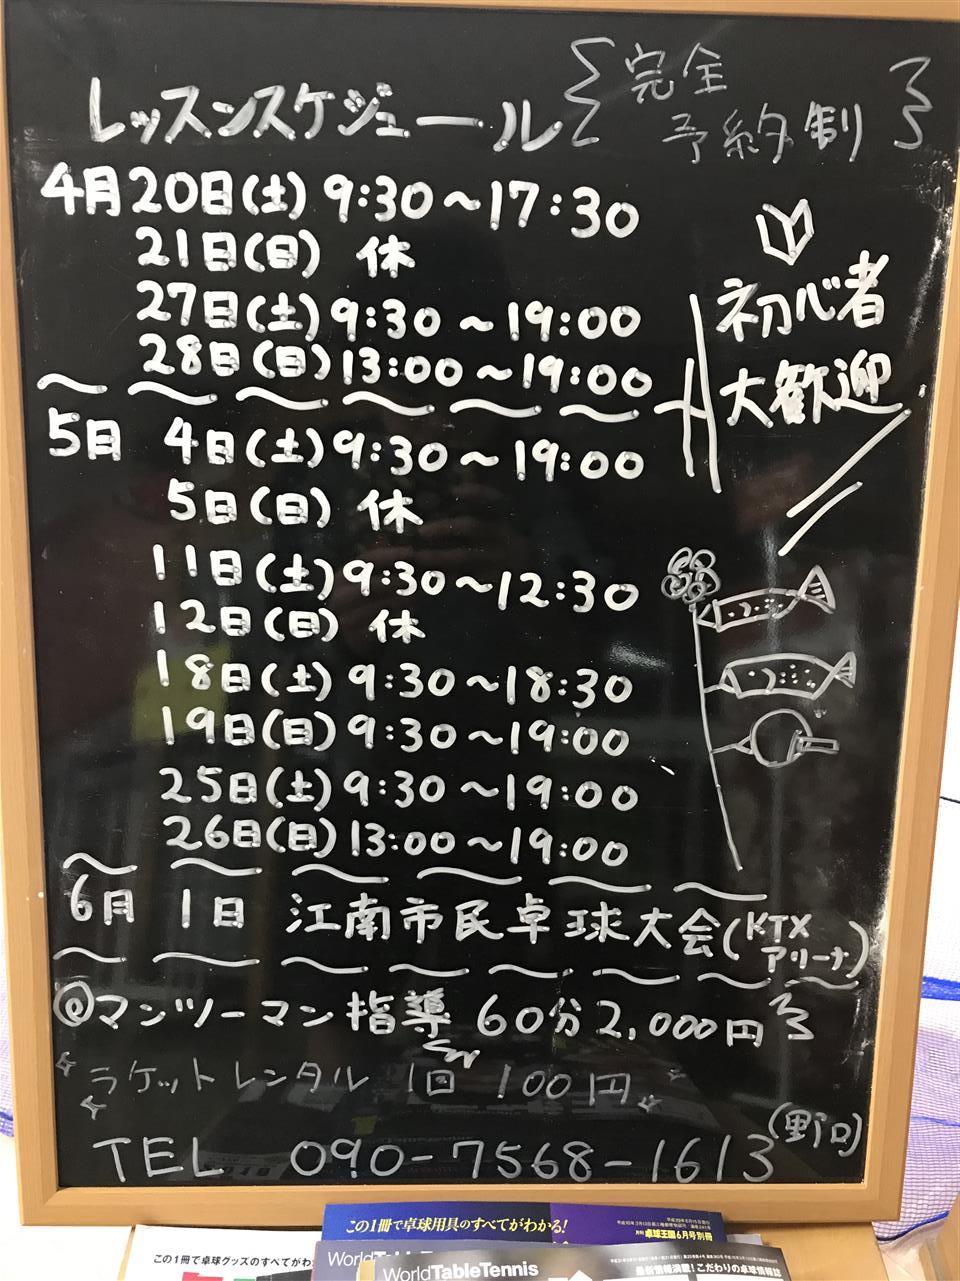 レッスンスケジュール
完全
予約制
4月20日(土) 9:30~17:30
21日(日) 休
27日(土) 9:30~19:00
28日(日) 13:00~19:00
初心者
大歓迎
5月 4日(土) 9:30~19:00
5日(日) 休
11日(土) 9:30~12:30
12日(日) 休
18日(土) 9:30~18:30
19日(日) 9:30~19:00
25日(土) 9:30~19:00
26日(日) 13:00~19:00
6月 1日 江南市民卓球大会(KTXアリーナ)
◎マンツーマン指導 60分2,000円
ラケットレンタル 1回 100円
(野口)
TEL 090-7568-1613
この1冊で卓球用具のすべてがわかる!
卓球王国6月号別冊
この1冊で卓球グッズのすべてがわか
World
World Table Tennis
最新情報満載!こだわりの卓球情報誌